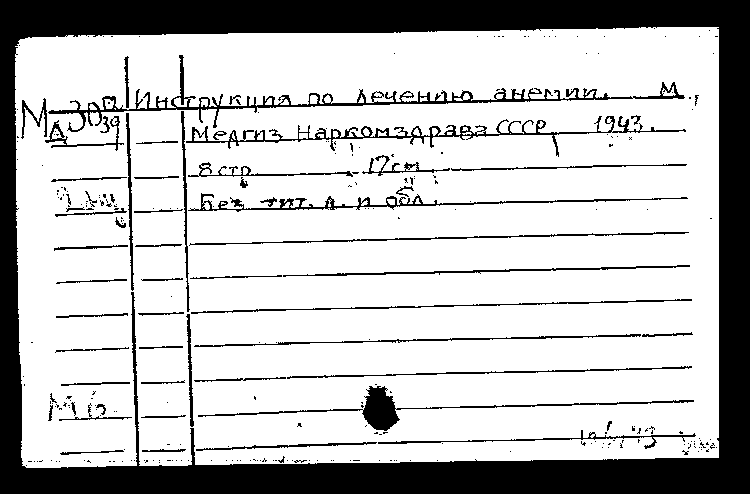 Инструкция по лечению анемии. М.,
Медгиз Наркомздрава СССР, 1943.
8 стр. 17 см
Без тит. л. и обл.
М 6